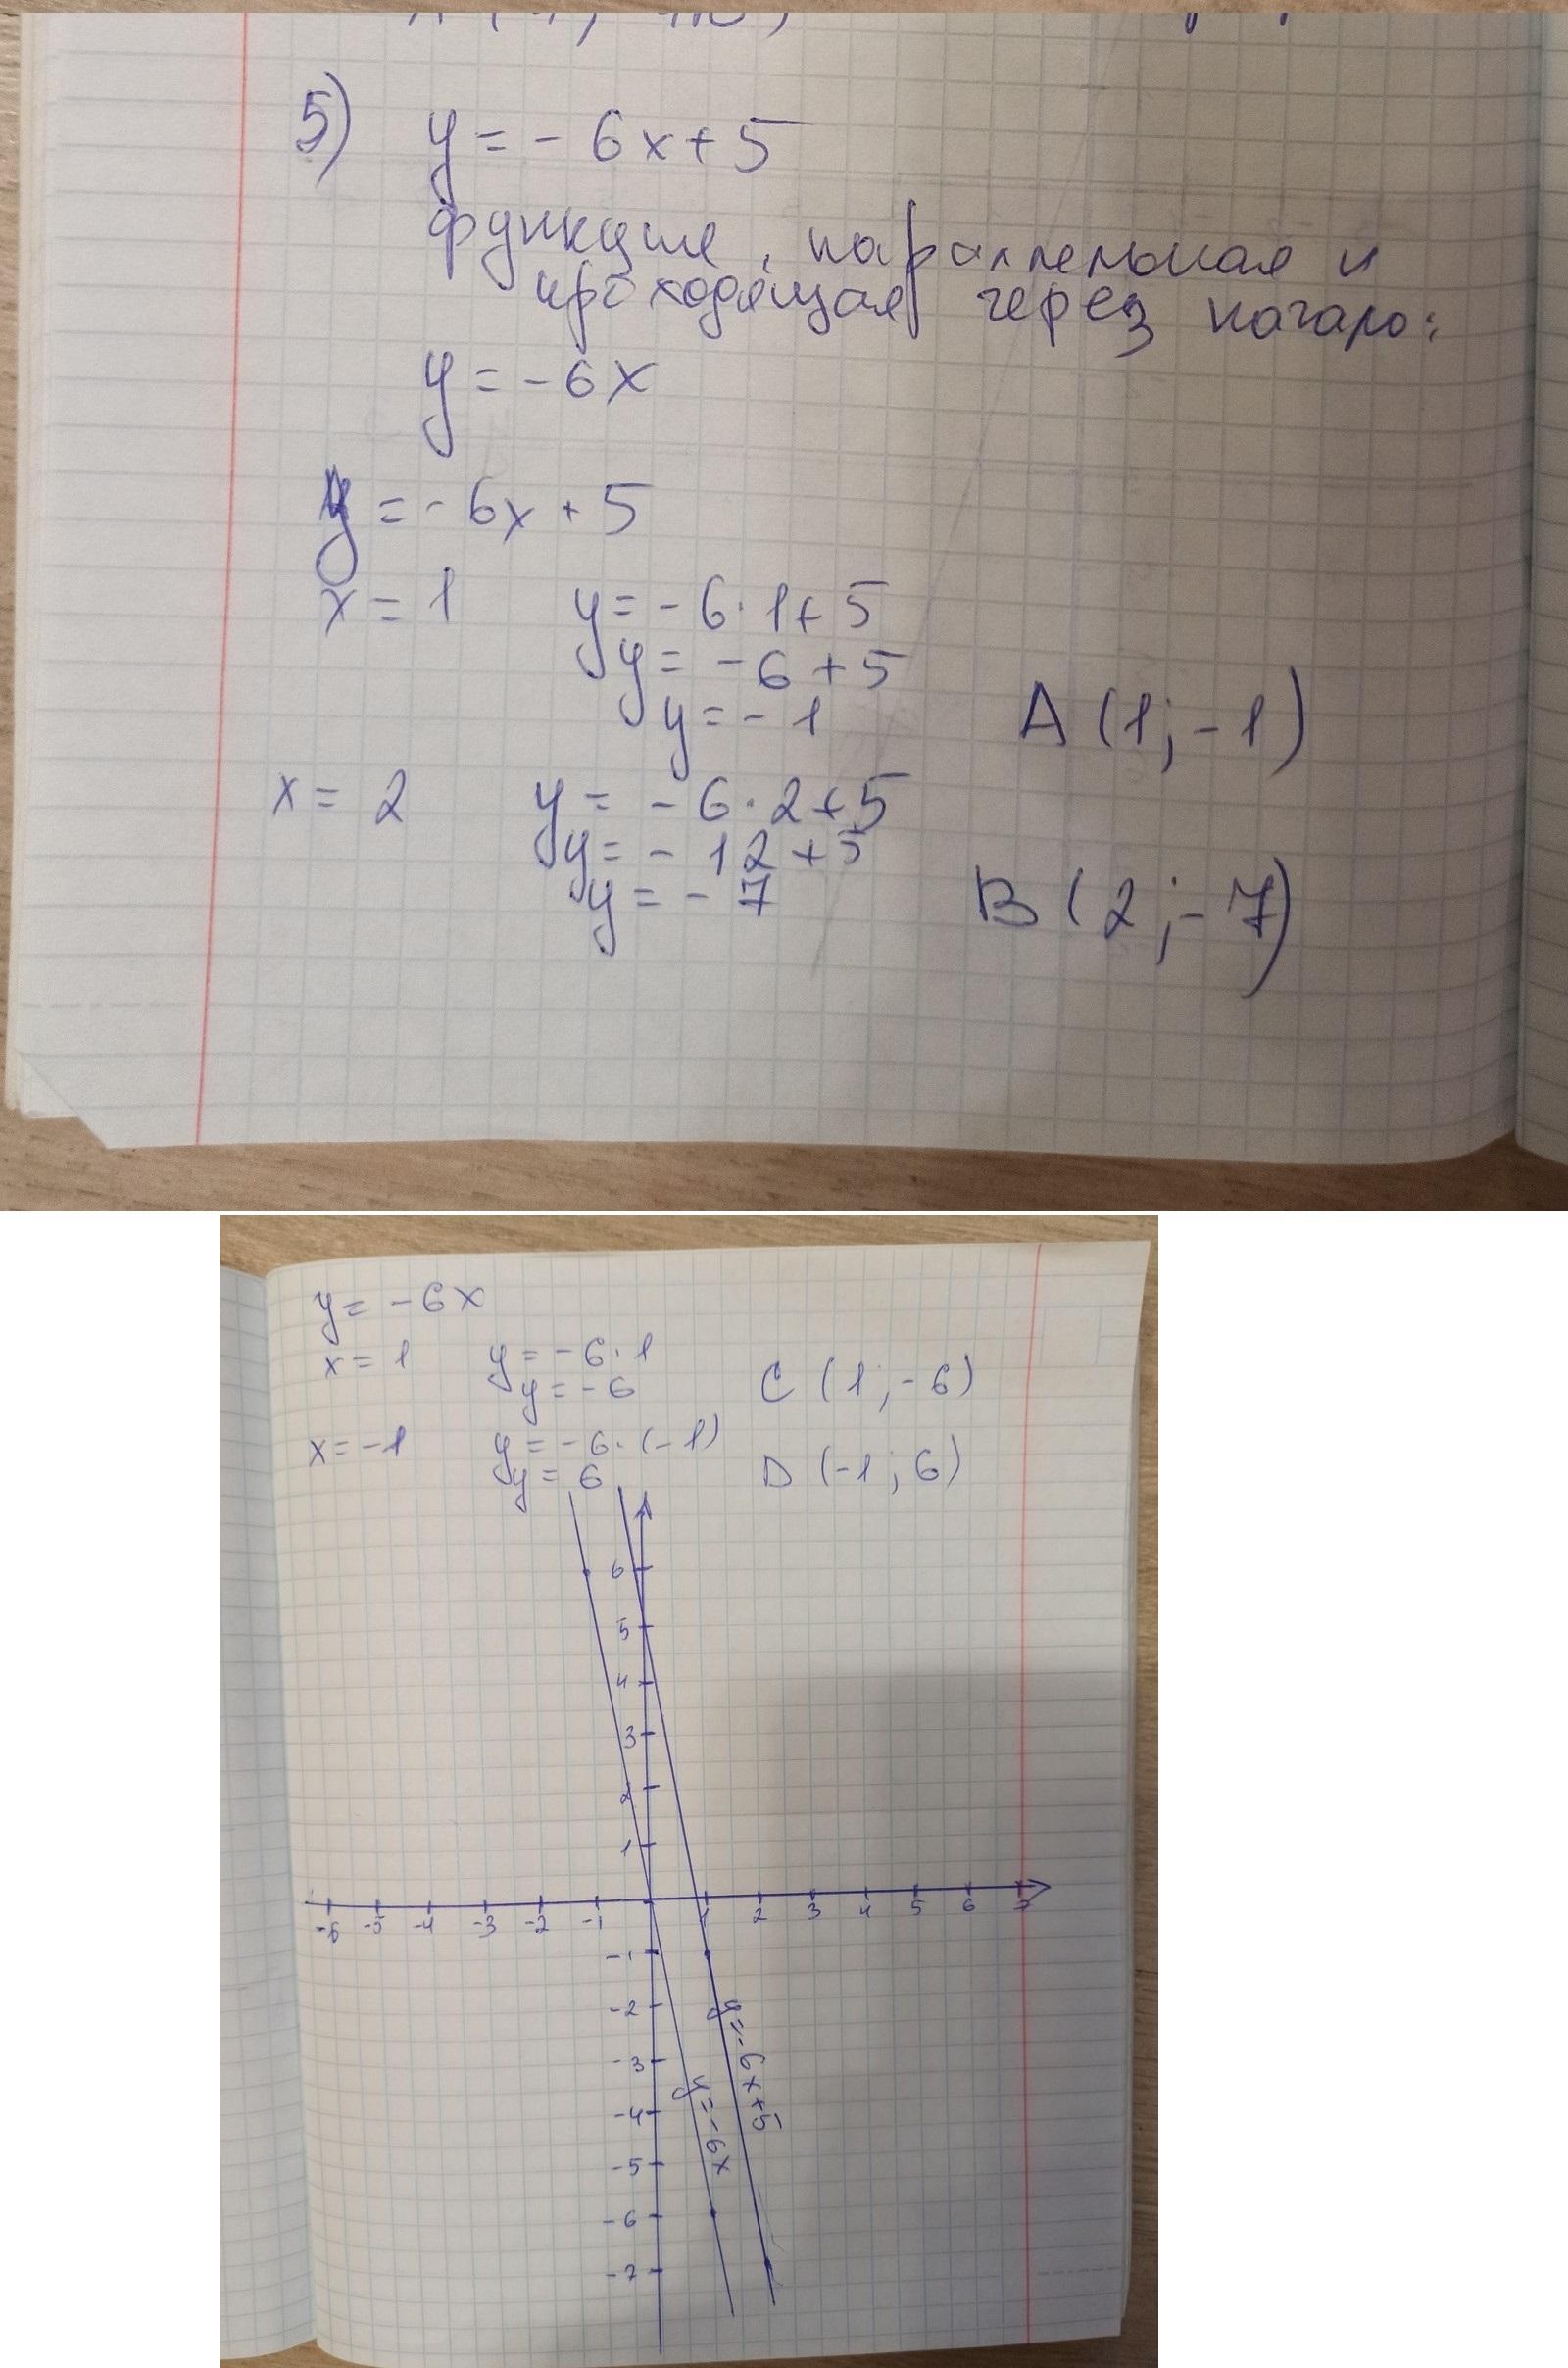 5) y = - 6x + 5
функция, параллельная и
проходящая через начало:
y = - 6x
y = - 6x + 5
x = 1 y = - 6 · 1 + 5
y = - 6 + 5
y = - 1 A (1; - 1)
x = 2 y = - 6 · 2 + 5
y = - 12 + 5
y = - 7 B (2; - 7)
y = - 6x
x = 1 y = - 6 · 1
y = - 6 C (1; - 6)
x = - 1 y = - 6 · (- 1)
y = 6 D (-1; 6)
6
5
4
3
2
1
-6 -5 -4 -3 -2 -1 1 2 3 4 5 6 7
-1
-2
-3
-4
-5
-6
-7
y = - 6x + 5
y = - 6x